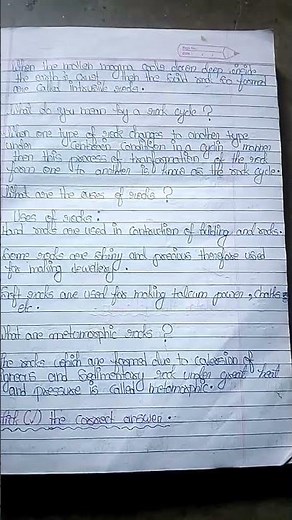 When the molten magma cools down deep inside
the earth's crust, then the solid rock so formed
are called intrusive rocks.
What do you mean by a rock cycle ?
When one type of rock changes to another type
under condition in a cyclic manner
then this process of transformation of the rock
from one to another is known as the rock cycle.
What are the uses of rocks ?
Uses of rocks :
Hard rocks are used in contruction of building and roads.
Some rocks are shiny and precious therefore used
for making jewellery.
Soft rocks are used for making talcum power, chalks
etc.
What are metamorphic rocks ?
The rocks which are formed due to of
igneous and sedimentary rock under great heat
and pressure is called metamorphic.
Tick (✓) the correct answer.